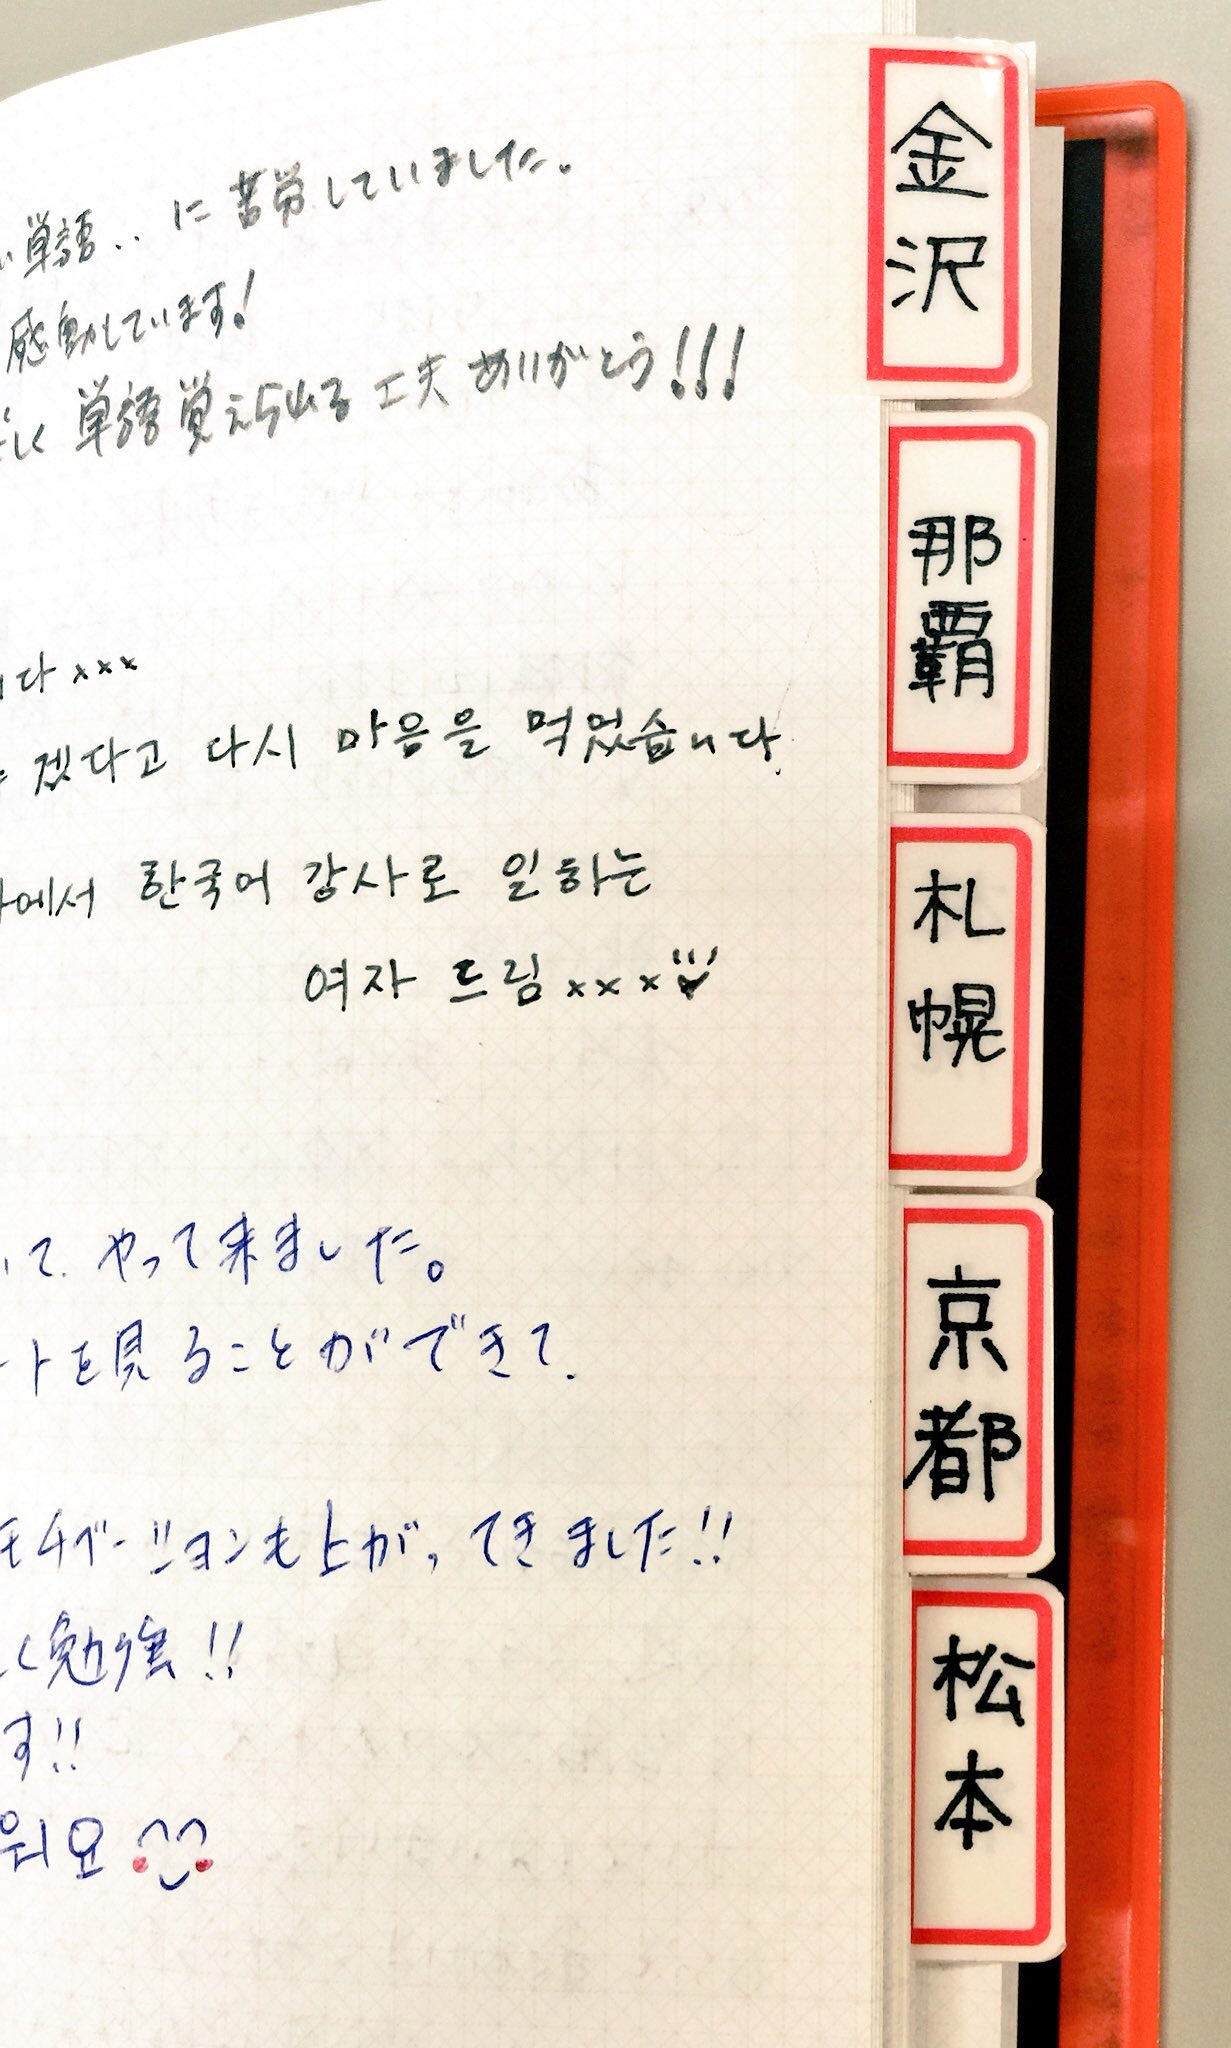 単語‥に苦労していました。
感動しています!
単語覚えられる工夫ありがとう!!!
다 xxx
겠다고 다시 마음을 먹었습니다.
에서 한국어 강사로 일하는
여자 드림 xxx
て、やって来ました。
トを見ることができて、
モチベーションも上がってきました!!
く勉強!!
す!!
워요
金沢
那覇
札幌
京都
松本